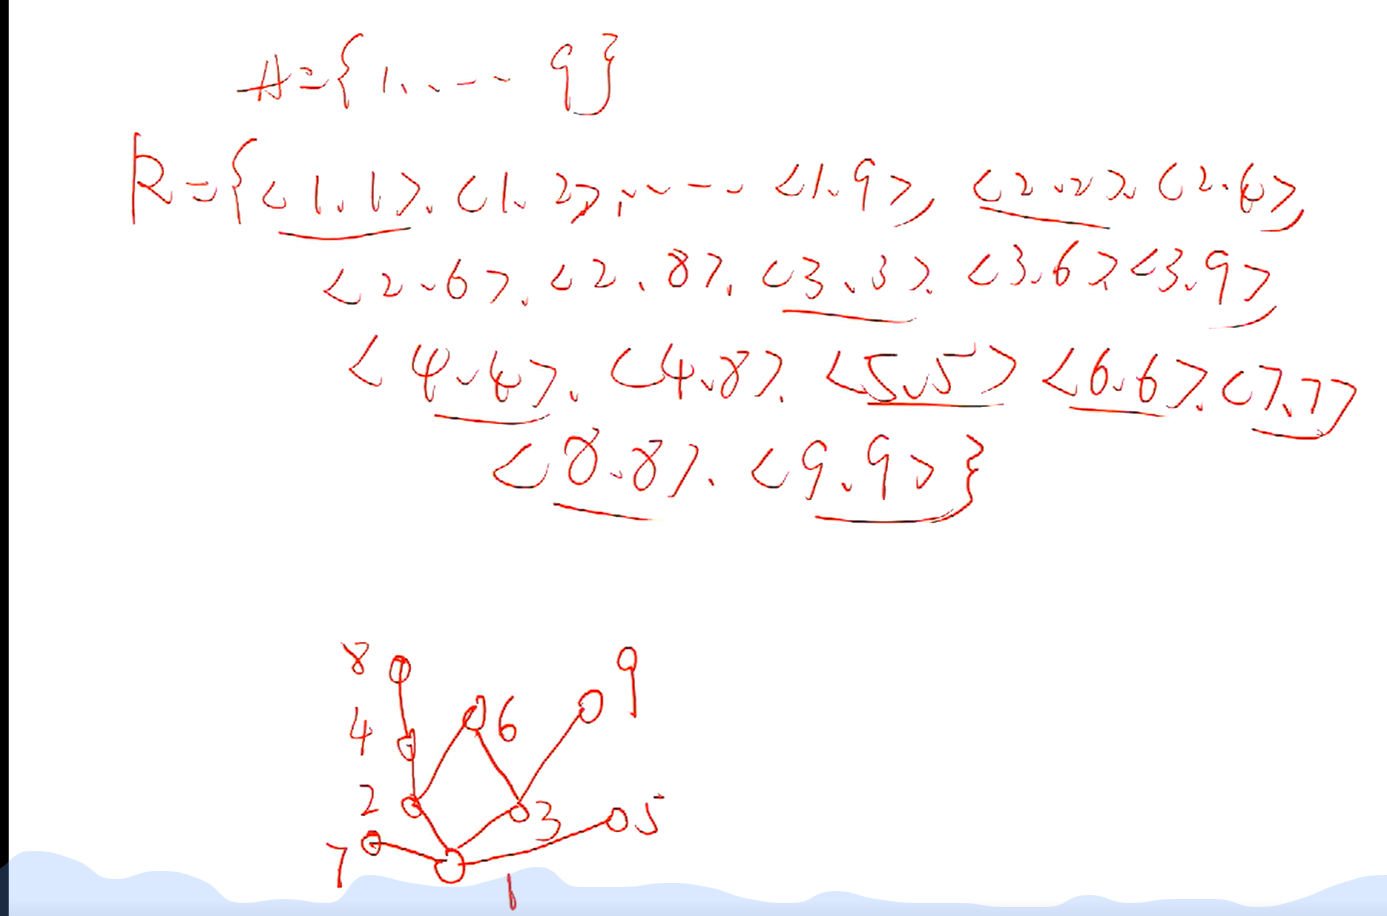 A={1,...9}
R={<1,1>,<1,2>,...<1,9>,<2,2>,<2,4>,
<2,6>,<2,8>,<3,3>,<3,6><3,9>
<4,4>,<4,8>,<5,5><6,6>,<7,7>
<8,8>,<9,9>}
8
9
4
6
2
3
5
7
1